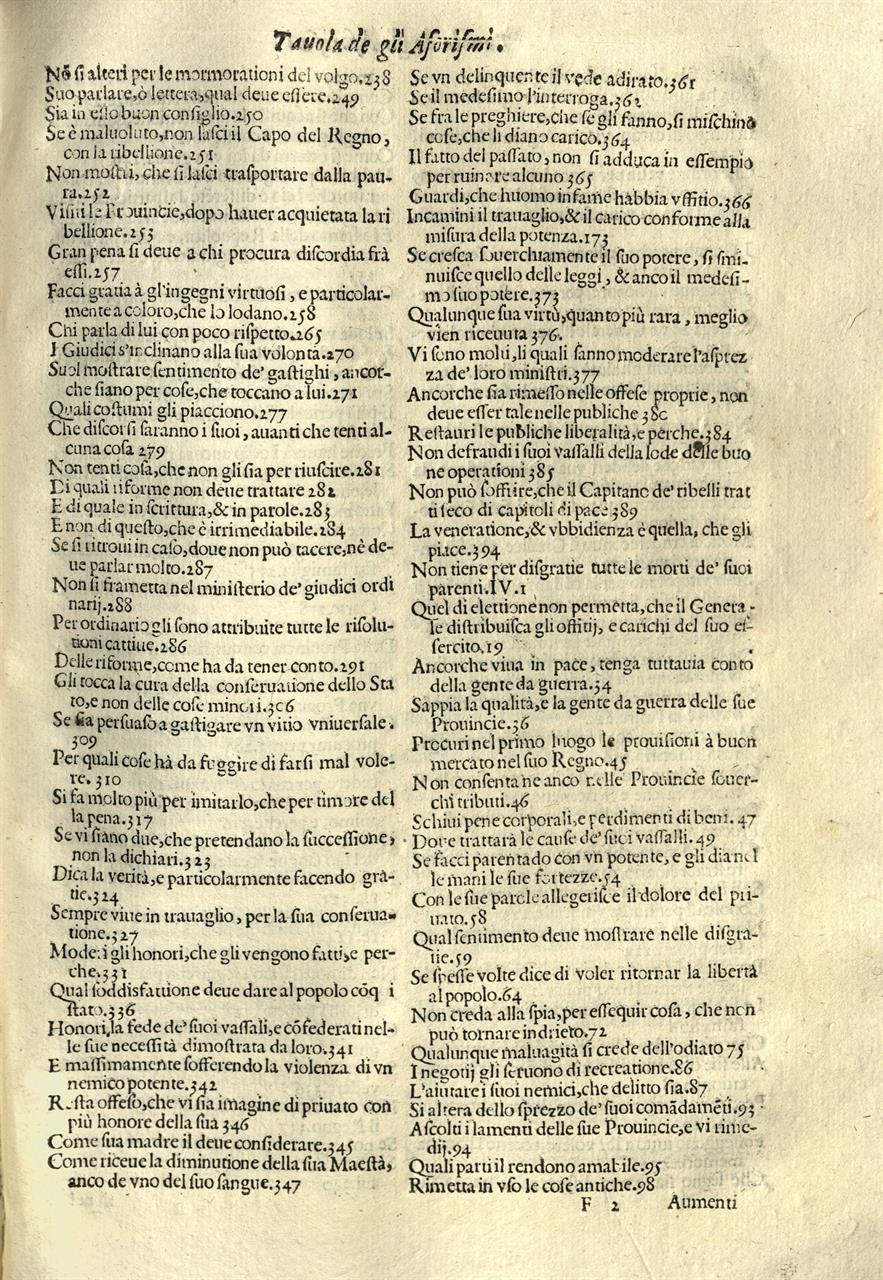 Tauola de gli Aforismi.
Nõ si alteri per le mormorationi del volgo.238
Suo parlare, ò lettera, qual deue essere.249
Sia in esso buon consiglio.250
Se è maluoluto, non lasci il Capo del Regno,
con la ribellione.251
Non mostri, che si lasci trasportare dalla pau-
ra.252
Visiti le Prouincie, dopo hauer acquietata la ri
bellione.253
Gran pena si deue a chi procura discordia frà
essi.257
Facci gratia à gl'ingegni virtuosi, e particolar-
mente a coloro, che lo lodano.258
Chi parla di lui con poco rispetto.265
I Giudici s'inclinano alla sua volontà.270
Suol mostrare sentimento de' gastighi, ancor-
che siano per cose, che toccano a lui.271
Quali costumi gli piacciono.277
Che discorsi faranno i suoi, auanti che tenti al-
cuna cosa 279
Non tenti cosa, che non gli sia per riuscire.281
Di quali riforme non deue trattare 282
E di quale in scrittura, & in parole.283
E non di questo, che è irrimediabile.284
Se si ritroui in caso, doue non può tacere, nè de-
ue parlar molto.287
Non si frametta nel ministerio de' giudici ordi
narij.288
Per ordinario gli sono attribuite tutte le risolu-
tioni cattiue.286
Delle riforme, come ha da tener conto.291
Gli tocca la cura della conseruatione dello Sta
to, e non delle cose minori.306
Se sia persuaso a gastigare vn vitio vniuersale.
309
Per quali cose hà da fuggire di farsi mal vole-
re. 310
Si fa molto più per imitarlo, che per timore del
la pena.317
Se vi siano due, che pretendano la successione,
non la dichiari.323
Dica la verità, e particolarmente facendo gra-
tie.324
Sempre viue in trauaglio, per la sua conserua-
tione.327
Moderi gli honori, che gli vengono fatti, e per-
che.331
Qual soddisfattione deue dare al popolo cõq i
stato.336
Honori la fede de' suoi vassali, e cõfederati nel-
le sue necessità dimostrata da loro.341
E massimamente sofferendo la violenza di vn
nemico potente.342
Resta offeso, che vi sia imagine di priuato con
più honore della sua 346
Come sua madre il deue considerare.345
Come riceue la diminutione della sua Maestà,
anco de vno del suo sangue.347
Se vn delinquente il vede adirato.361
Se il medesimo l'interroga.362
Se fra le preghiere, che se gli fanno, si mischino
cose, che li diano carico.364
Il fatto del passato, non si adduca in essempio
per ruinare alcuno 365
Guardi, che huomo infame habbia vffitio.366
Incamini il trauaglio, & il carico conforme alla
misura della potenza.173
Se cresca souerchiamente il suo potere, si smi-
nuisce quello delle leggi, & anco il medesi-
mo suo potere.373
Qualunque sua virtù, quanto più rara, meglio
vien riceuuta 376.
Vi sono molti, li quali fanno moderare l'asprez
za de' loro ministri.377
Ancorche sia rimesso nelle offese proprie, non
deue esser tale nelle publiche 380
Restauri le publiche liberalità, e perche.384
Non defraudi i suoi vassalli della lode delle buo
ne operationi 385
Non può soffrire, che il Capitano de' ribelli trat
ti seco di capitoli di pace.389
La veneratione, & vbbidienza è quella, che gli
piace.394
Non tiene per disgratie tutte le morti de' suoi
parenti.IV.1
Quel di elettione non permetta, che il Genera-
le distribuisca gli offitij, e carichi del suo es-
sercito.19
Ancorche viua in pace, tenga tuttauia conto
della gente da guerra.34
Sappia la qualità, e la gente da guerra delle sue
Prouincie.36
Procuri nel primo luogo le prouisioni à buon
mercato nel suo Regno.45
Non consenta ne anco nelle Prouincie souer-
chi tributi.46
Schiui pene corporali, e perdimenti di beni. 47
Doue trattarà le cause de' suoi vassalli.49
Se facci parentado con vn potente, e gli dia nel
le mani le sue fortezze.54
Con le sue parole allegerisce il dolore del pri-
uato.58
Qual sentimento deue mostrare nelle disgra-
tie.59
Se spesse volte dice di voler ritornar la libertà
al popolo.64
Non creda alla spia, per essequir cosa, che non
può tornare indrieto.72
Qualunque maluagità si crede dell'odiato 75
I negotij gli seruono di recreatione.86
L'aiutare i suoi nemici, che delitto sia.87
Si altera dello sprezzo de' suoi comãdamẽti.93
Ascolti i lamenti delle sue Prouincie, e vi rime-
dij.94
Quali parti il rendono amabile.95
Rimetta in vso le cose antiche.98
F 2 Aumenti